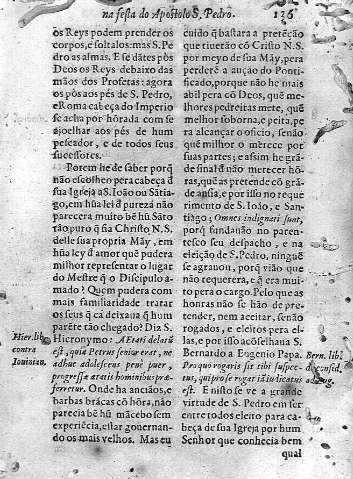 na festa do Apostolo S. Pedro. 136
os Reys podem prender os
corpos, e soltalos: mas S. Pe-
dro as almas. E se dãtes põs
Deos os Reys debaixo das
mãos dos Profetas: agora
os põs aos pés de S. Pedro,
e Roma cabeça do Imperio
se acha por hõrada com se
ajoelhar aos pés de hum
pescador, e de todos seus
successores.
Porem he de saber porq̃
não escolheo pera cabeça d
sua Igreja a S. Ioão ou Sãtia-
go, em hũa lei d pureza não
parecera muito bẽ hũ Sãto
tão puro q̃ fia Christo N. S.
delle sua propria Mãy, em
hũa ley d amor quẽ pudera
milhor representar o lugar
do Mestre q̃ o Discipulo a-
mado? Quem pudera com
mais familiaridade tratar
os seus q̃ ca deixaua q̃ hum
parẽte tão chegado? Diz S.
Hieronymo: Aetati delatũ
est, quia Petrus senior erat, ne
adhuc adolescens penè puer,
progressæ ætatis hominibus præ-
ferretur. Onde ha anciãos, e
barbas brãcas cõ hõra, não
parecia bẽ hũ mãcebo sem
experiẽcia, estar gouernan-
do os mais velhos. Mas eu
Hier. lib.
contra
Iouinian.
cuido q̃ bastara a pretẽção
que tiuerão cõ Christo N. S.
por meyo de sua Mãy, pera
perderẽ a aução do Ponti-
ficado, porque não he mais
abil pera cõ Deos, quẽ me-
lhores pedreiras mete, quẽ
melhor soborna, e peita, pe-
ra alcançar o oficio, senão
quẽ milhor o merece por
suas partes; e assim he grã-
de sinal d não merecer hõ-
ras, quẽ as pretende cõ grã-
de ansia, e por isso no reque-
rimento de S. Ioão, e San-
tiago; Omnes indignati sunt,
porq̃ fundauão no paren-
tesco seu despacho, e na
eleição de S. Pedro, ninguẽ
se agrauou, porq̃ vião que
não requerera, e q̃ era mui-
to pera o cargo. Pelo que as
honras não se hão de pre-
tender, nem aceitar, senão
rogados, e eleitos pera el-
las, e por isso acõselhaua S.
Bernardo a Eugenio Papa.
Pro quo rogaris sit tibi suspec-
tus, qui pro se rogat iã iudicatus
est. E nisto se ve a grande
virtude de S. Pedro em ser
entre todos eleito para ca-
beça de sua Igreja por hum
Senhor que conhecia bem
qual
Bern. lib.
de consid.
ad Eug.